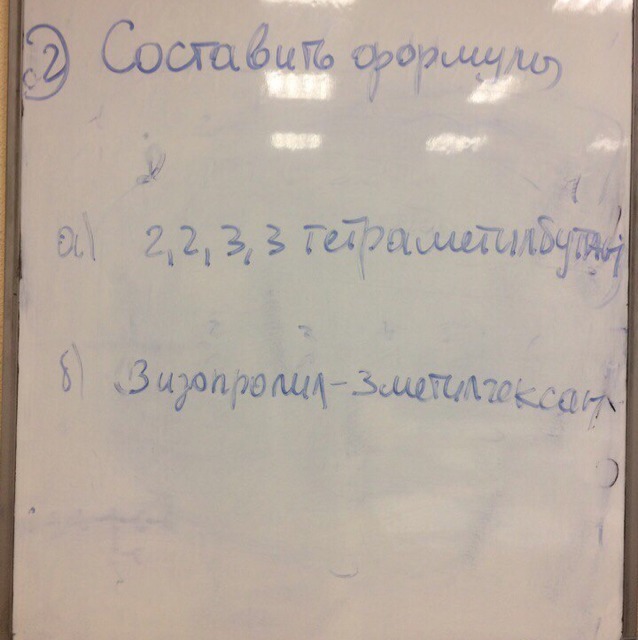 2) Составить формулы
а) 2,2,3,3 тетраметилбутан
б) 3изопропил-3метилгексан